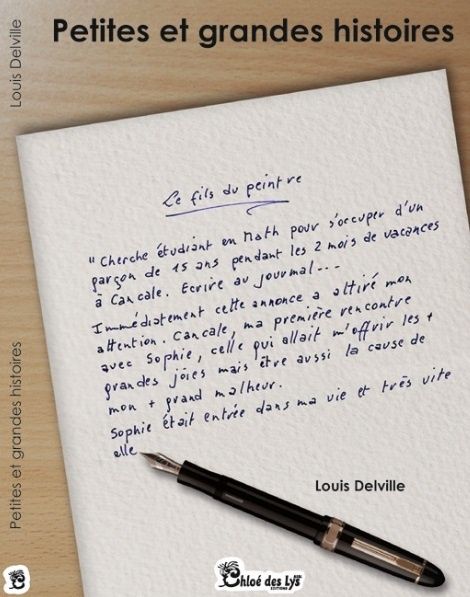 Petites et grandes histoires
Louis Delville
Le fils du peintre
"Cherche étudiant en Math pour s'occuper d'un
garçon de 15 ans pendant les 2 mois de vacances
à Cancale. Ecrire au journal...
Immédiatement cette annonce a attiré mon
attention. Cancale, ma première rencontre
avec Sophie, celle qui allait m'offrir les +
grandes joies mais être aussi la cause de
mon + grand malheur.
Sophie était entrée dans ma vie et très vite
elle
Louis Delville
Petites et grandes histoires
Chloé des Lys
EDITIONS